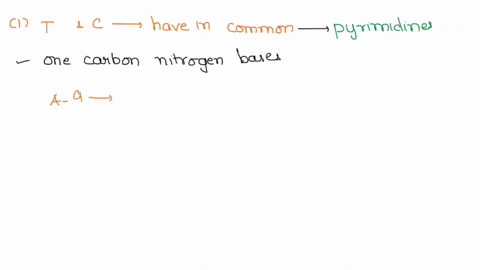 (1) T & C → have in common → pyrimidines
- one carbon nitrogen bases
A-G →